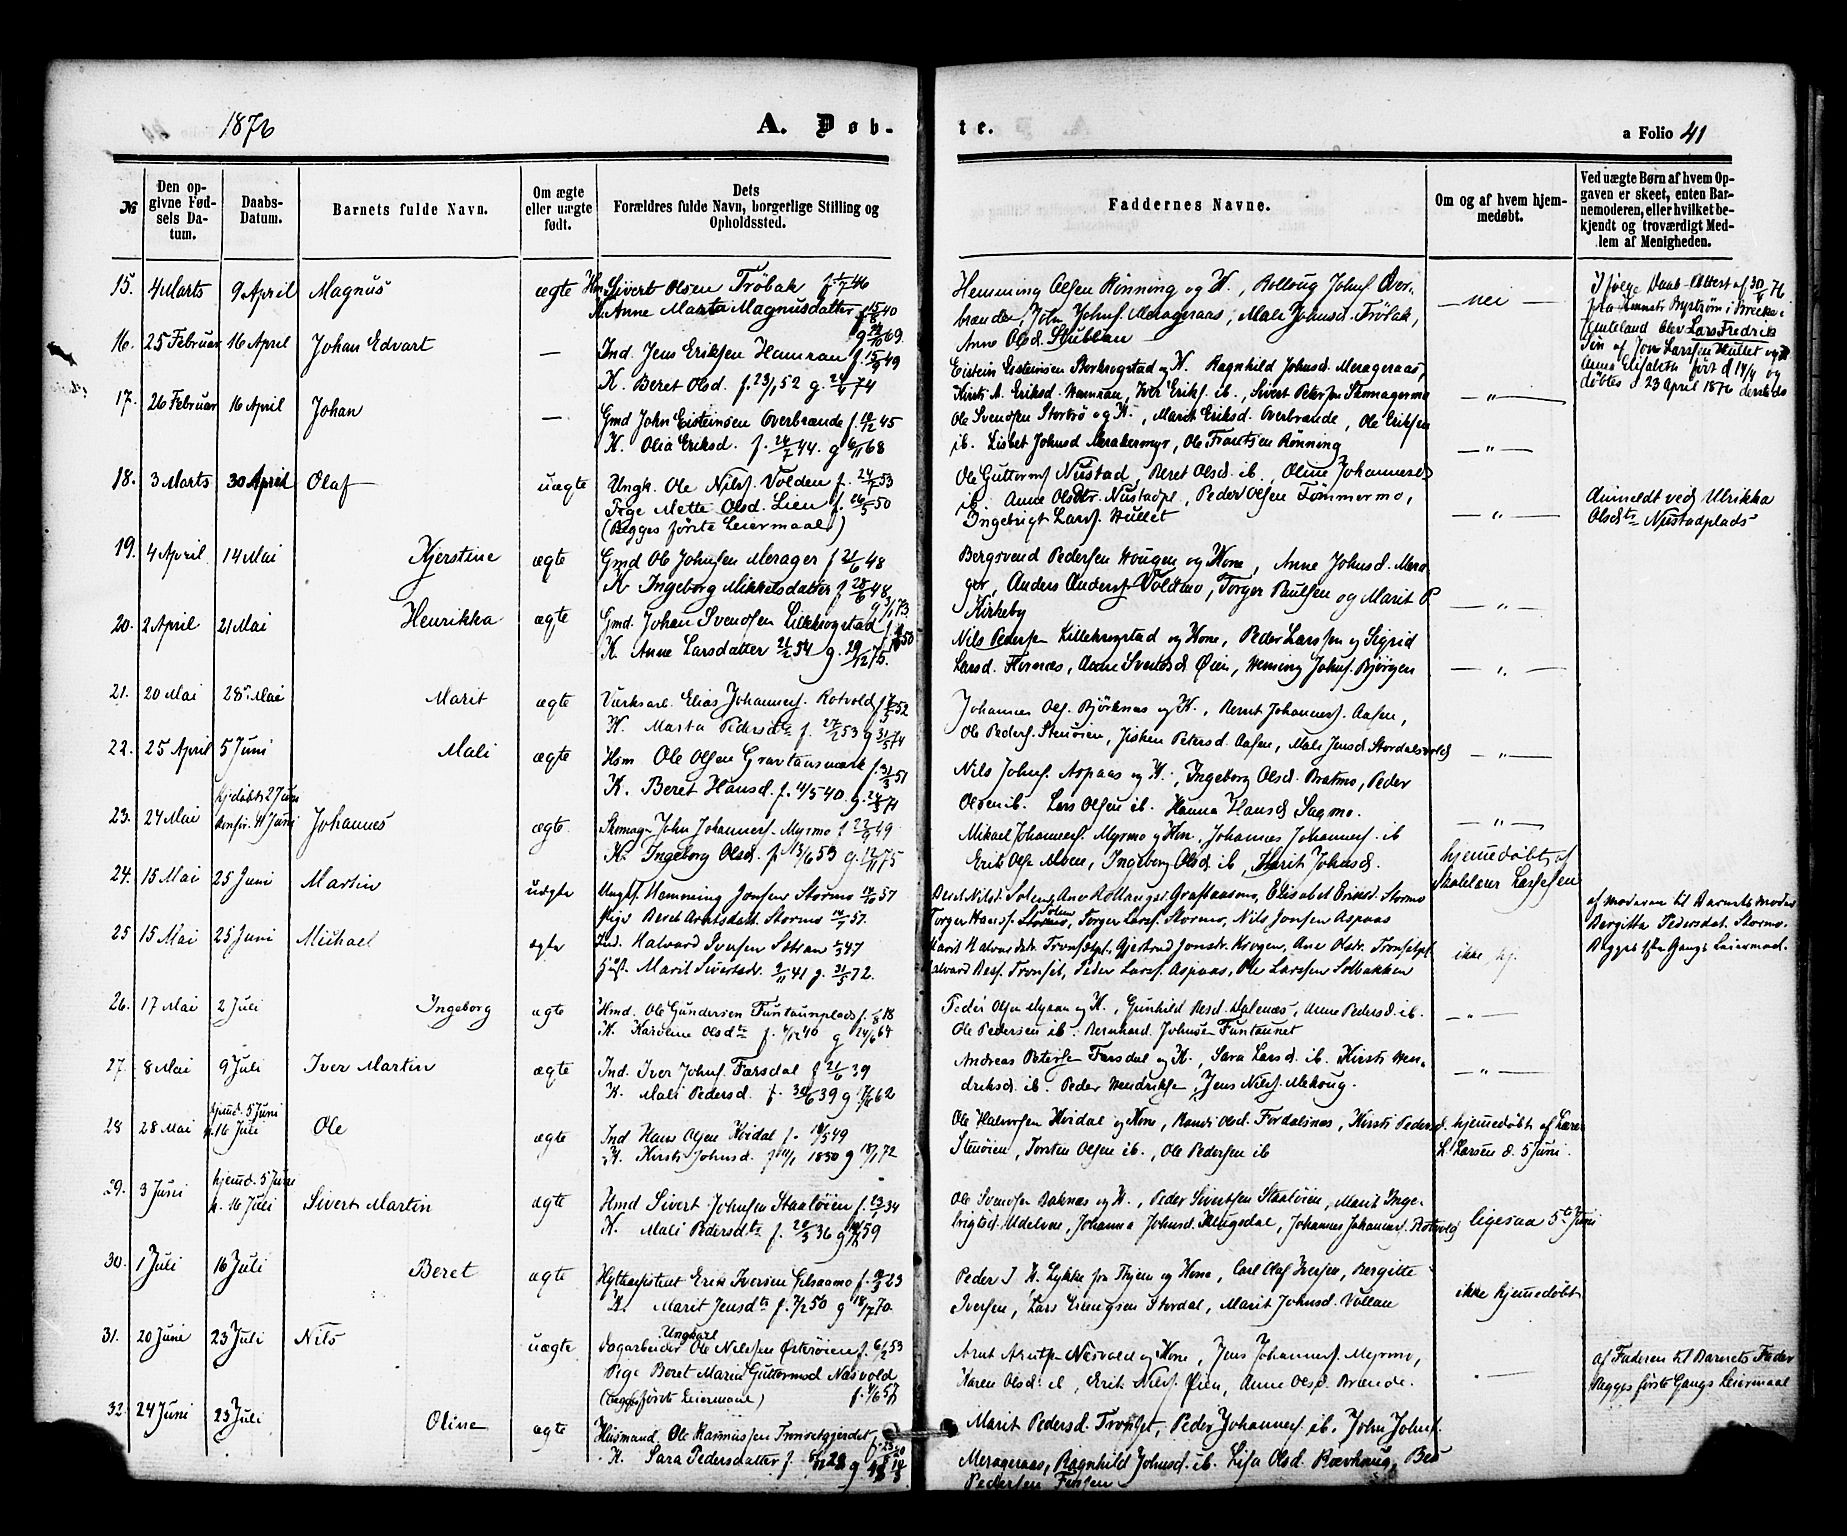 1876
A. Døb-
te.
a Folio 41
№
Den op-
givne Fød-
sels Da-
tum.
Daabs-
Datum.
Barnets fulde Navn.
Om ægte
eller uægte
født.
Dets
Forældres fulde Navn, borgerlige Stilling og
Opholdssted.
Faddernes Navne.
Om og af hvem hjem-
medøbt.
Ved uægte Børn af hvem Op-
gaven er skeet, enten Bar-
nemoderen, eller hvilket be-
kjendt og troværdigt Med-
lem af Menigheden.
15. 4 Marts 9 April Magnus ægte Sivert Olsen Trøbak
Anne Marta Magnusdatter
Hemming Olsen Rønning og K., Rollaug Johns. Over-
brande, John Johns. Merageraas, Mali Johnsd. Trøbak,
Anne Olsd. Stubban
— nei —
Ifølge Daab-Attest af 30/4 76
Lars Fredrik
Søn af Jon Larssen Hullet og
Anna Elisabeth født d 14/4 og
døbtes d 23 April 1876 dersteds
16. 25 Februar 16 April Johan Edvart — Ind. Jens Eriksen Hamran f. 15/9 49
K. Beret Olsd. f. 23/1 52 g. 24/4 74
Eistein Eisteinsen Storkrogstad og K. Ragnhild Johnsd. Merageraas,
Kirsti A. Eriksd. Hamran, Iver Eriks. ib., Sivert Petersen Skomagermo
— „ —
17. 26 Februar 16 April Johan — Gmd John Eisteinsen Overbrande f. 45
K. Olia Eriksd. f. 26/7 44. g 6/11 68
Ole Svendsen Storbrø og K., Marit Eriksd. Overbrande, Ole Eriksen
ib. Lisbet Johnsd Merakermyr, Ole Frantsen Rønning
— „ —
18. 3 Marts 30 April Olaf uægte Ungk. Ole Nilss. Volden f. 24/7 53
Pige Mette Olsd. Lien f. 50
(Begges første Leiermaal)
Ole Guttorms. Nustad, Beret Olsd. ib., Oline Johannesd
ib. Anne Olsdtr. Nustadpl., Peder Olsen Tømmermo,
Ingebrigt Larss. Hullet
— „ —
Anmeldt ved Ulrikka
Olsdtr Nustadplads
19. 4 April 14 Mai Kjerstine ægte Gmd Ole Johnsen Merager f 21/6 48
K. Ingeborg Mikkelsdatter f 28/6 48,
Bergsvend Pedersen Hougen og Kone, Anne Johnsd. Mera-
ger, Anders Anders. Voldmo, Torger Paulsen og Marit P
Kirkeby
— „ —
20. 2 April 21 Mai Henrikka ægte Gmd. Johan Svendsen Lillekrogstad
K. Anne Larsdatter 21/2 54 g. 29/12 75.
Nils Pedersen Lillekrogstad og Kone, Peder Larssen og Sigrid
Larsd. Fersnæs, Anne Svendsd Øien, Henning Johns. Bjørgen
— „ —
21. 20 Mai 28de Mai Marit ægte Værksarb. Elias Johanness. Rotvold
K. Marta Pedersdtr f. 53 g 31/5 74
Johannes Ols. Bjørknas og K., Bernt Johanness. Aasen,
Ole Peders. Stenøien, Jisken Petersd. Aasen, Mali Jensd. Stordalsvold
— „ —
22. 25 April 5 Juni Mali ægte Hsm Ole Olsen Gravtaasmark f. 31/3 51
K. Beret Hansd. f. 4/5 40. g. 24/3 71
Nils Johns. Aspaas og K., Ingeborg Olsd. Bratmo, Peder
Olsen ib. Lars Olsen ib. Hanna Hansd Sagmo.
— „ —
23. 24 Mai hjdøbt 27 Juni
konfir. 11 Juni Johannes ægte. Skomag. John Johanness. Myrmo f 49
K. Ingeborg Olsd. f. 13/6 53 g. 12/11 75
Mikael Johanness. Myrmo og Kone, Johannes Johanness. ib
Erik Ols Moen, Ingeborg Olsd ib, Marit Johnsd.
hjemmedøbt af
Skolelærer Larssen
24. 15 Mai 25 Juni Martin uægte Ungk. Hemming Jonsen Stormo 57
Pige Beret Arntsdatt. Stormo 57.
Elisabet Eriksd. Stormo
Torger Larss. Stormo, Nils Jonsen Aspaas
af moderen til Barnets moder
Bergitta Pedersdat. Stormo.
Begges 1ste Gangs Leiermaal.
25 15 Mai 25 Juni Michael ægte Ind. Halvard Iversen 47
Marit Sivertsdr. 9/11 41 g. 31/5 72.
Marit Halvardsdtr Tronsetpl., Gjertrud Jonsdr. Krogen, Ane Olsdr. Tronsetpl
Halvard Bers. Tronset, Peder Larss. Aspaas, Ole Larssen Solbakken
ikke hj.
26. 17 Mai 2 Juli Ingeborg ægte Hmd. Ole Gundersen Funtaunplads f. 18
K. Karoline Olsdtr f. 4/12 40 g 24/6 64
Peder Olsen og K., Gunhild Dalenæs, Anne Pedersd. ib.
Ole Pedersen ib. Bernhard Johnsen Funtaunet
— „ —
27. 8 Mai 9 Juli Iver Martin ægte Ind. Iver Johns. Færsdal f 21/6 39
K. Mali Pedersd. f. 30/6 39 g. 62
Andreas Peters. Færsdal og K., Sara Larsd. ib. Kirsti Hen-
driksd. ib. Peder Hendriksen, Jens Nilss. Mehoug.
— „ —
28 28 Mai hjemd. 5 Juni
p. 16 Juli Ole ægte Ind Hans Olsen Kvidal f. 49
K. Kirsti Johnsd. f 1850 g 18/1 72
Ole Halvorsen Kvidal og Kone, Randi Olsd. Fordalsnæs, Kirsti Pedersd.
Stenøien, Torsten Olsen ib., Ole Pedersen ib
hjemmedøbt af Lærer
L. Larsen d. 5 Juni.
29. 3 Juni hjemd. 5 Juni
p. 16 Juli Sivert Martin ægte Hmd Sivert Johnsen Staaløien f. 23/1 34
K. Mali Pedersdtr f. 20/3 36 g 59
Ole Svendsen Baknæs og K., Peder Sivertsen Staaløien, Marit Inge-
brigtsd. Johanna Johnsd. Klugsdal, Johannes Johanness. Rotvold
ligesaa 5te Juni
30. 1 Juli 16 Juli Beret ægte Hytteassistent Erik Iversen Gilsaamo f. 23
K. Marit Jensdtr f. 7/2 50 g 18/7 70.
Peder J H. Lykke fra Thjem og Kone, Carl Olaf Iversen, Bergitte
Iversen, Lars Stordal, Marit Johnsd. Vollan
ikke hjemmedøbt
31. 20 Juni 23 Juli Nils uægte Ungkarl
Dagarbeider Ole Nilssen Østerøien f. 6/2 53
Pige Beret Maria Guttormsd Næsvold
(begges første Leiermaal) f. 4/6 57
Arnt Arnts. Næsvold og Kone, Jens Johanness. Myrmo,
Karen Olsd. ib, Erik Nilss Øien, Anne Olsd. Brænde.
— „ —
af Faderen til Barnets Fader
Begges første Gangs Leiermaal
32. 24 Juni 23 Juli Oline ægte Husmand. Ole Rasmussen Funsetgjerdet
K. Sara Pedersdatter f. 28 g
Marit Pedersd. Tronset, Peder Johanness. ib. John Johns.
Merageraas, Ragnhild Johnsd. ib. Lisa Olsd. Rævhaug,
Pedersen Funsen